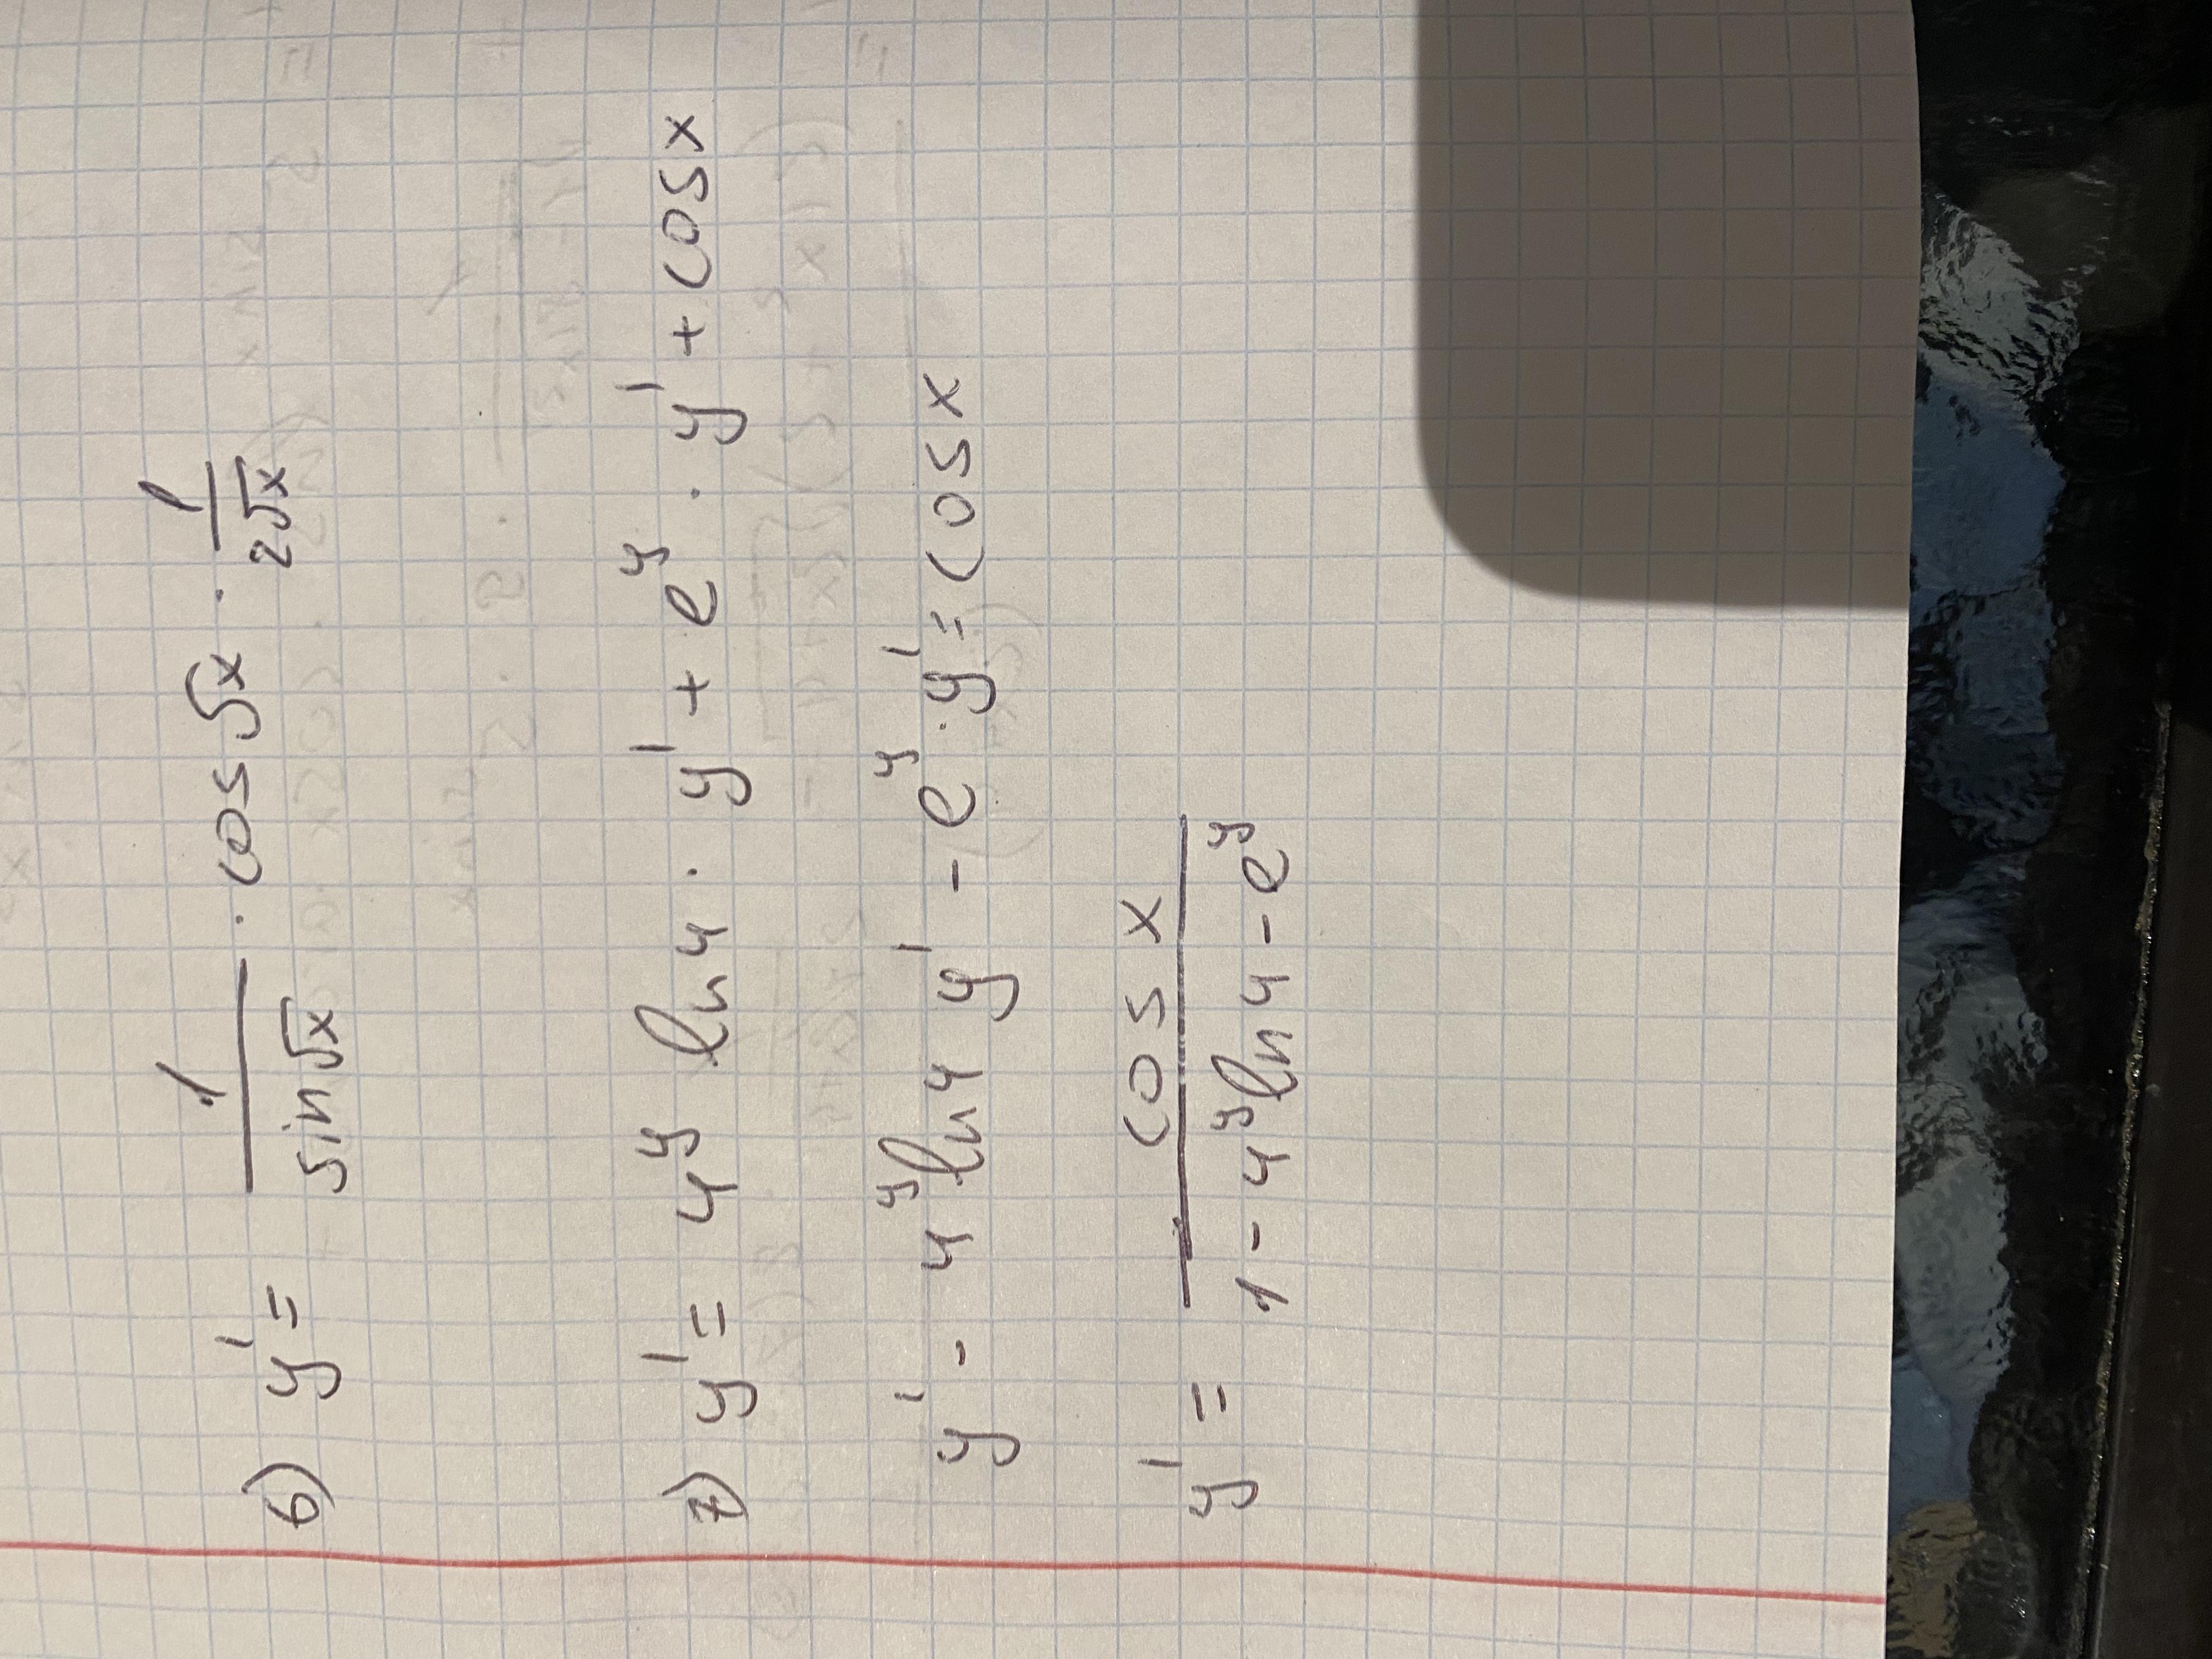 6) y' = 1/sin√x · cos√x · 1/2√x
7) y' = 4^y ln4 · y' + e^y · y' + cosx
y' - 4^y ln4 y' - e^y · y' = cosx
y' = cosx/1 - 4^y ln4 - e^y